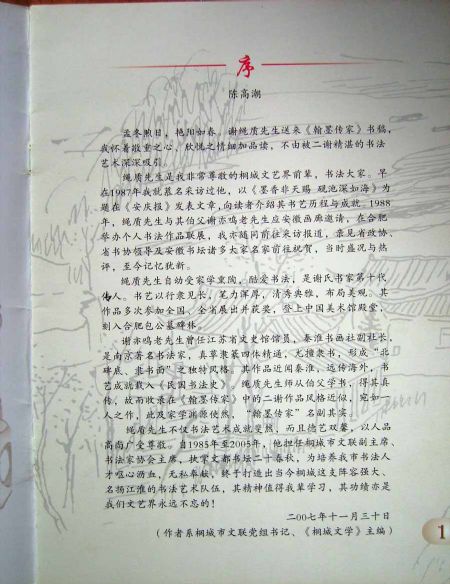 序
陈高潮
孟冬朔日，艳阳如春。谢绳质先生送来《翰墨传家》书稿，
我怀着敬重之心，欣悦之情细加品读，不由被二谢精湛的书法
艺术深深吸引。
绳质先生是我非常尊敬的桐城文艺界前辈，书法大家。早
在1987年我就慕名采访过他，以《墨香非天赐 砚池深如海》为
题在《安庆报》发表文章，向读者介绍其书艺历程与成就。1988
年，绳质先生与其伯父谢亦鸣老先生应安徽画廊邀请，在合肥
举办个人书法作品联展，我亦随同前往采访报道，亲见省政协、
省书协领导及安徽书坛诸多大家名家前往祝贺，当时盛况与热
评，至今记忆犹新。
绳质先生自幼受家学熏陶，酷爱书法，是谢氏书家第十代
传人。书艺以行隶见长，笔力浑厚，清秀典雅，布局美观。其
作品多次参加全国、全省展出并获奖，登上中国美术馆殿堂，
刻入合肥包公墓碑林。
谢亦鸣老先生曾任江苏省文史馆馆员，秦淮书画社副社长，
是南京著名书法家，真草隶篆四体精通，尤擅隶书，形成“北
碑底、隶书面”之独特风格。其作品近闻秦淮，远传海外，书
艺成就载入《民国书法史》。绳质先生师从伯父学书，得其真
传，故而收录在《翰墨传家》中的二谢作品风格近似，宛如一
人之作，此及家学渊源使然，“翰墨传家”名副其实。
绳质先生不仅书法艺术成就斐然，而且德艺双馨，以人品
高尚广全尊敬。自1985年至2005年，他担任桐城市文联副主席、
书法家协会主席，执掌文都书坛二十春秋，为培养我市书法人
才呕心沥血，无私奉献，终于打造出当今桐城这支阵容强大、
名扬江淮的书法艺术队伍，其精神值得我辈学习，其功绩亦是
我们文艺界永远不忘的！
二00七年十一月三十日
（作者系桐城市文联党组书记、《桐城文学》主编）
1